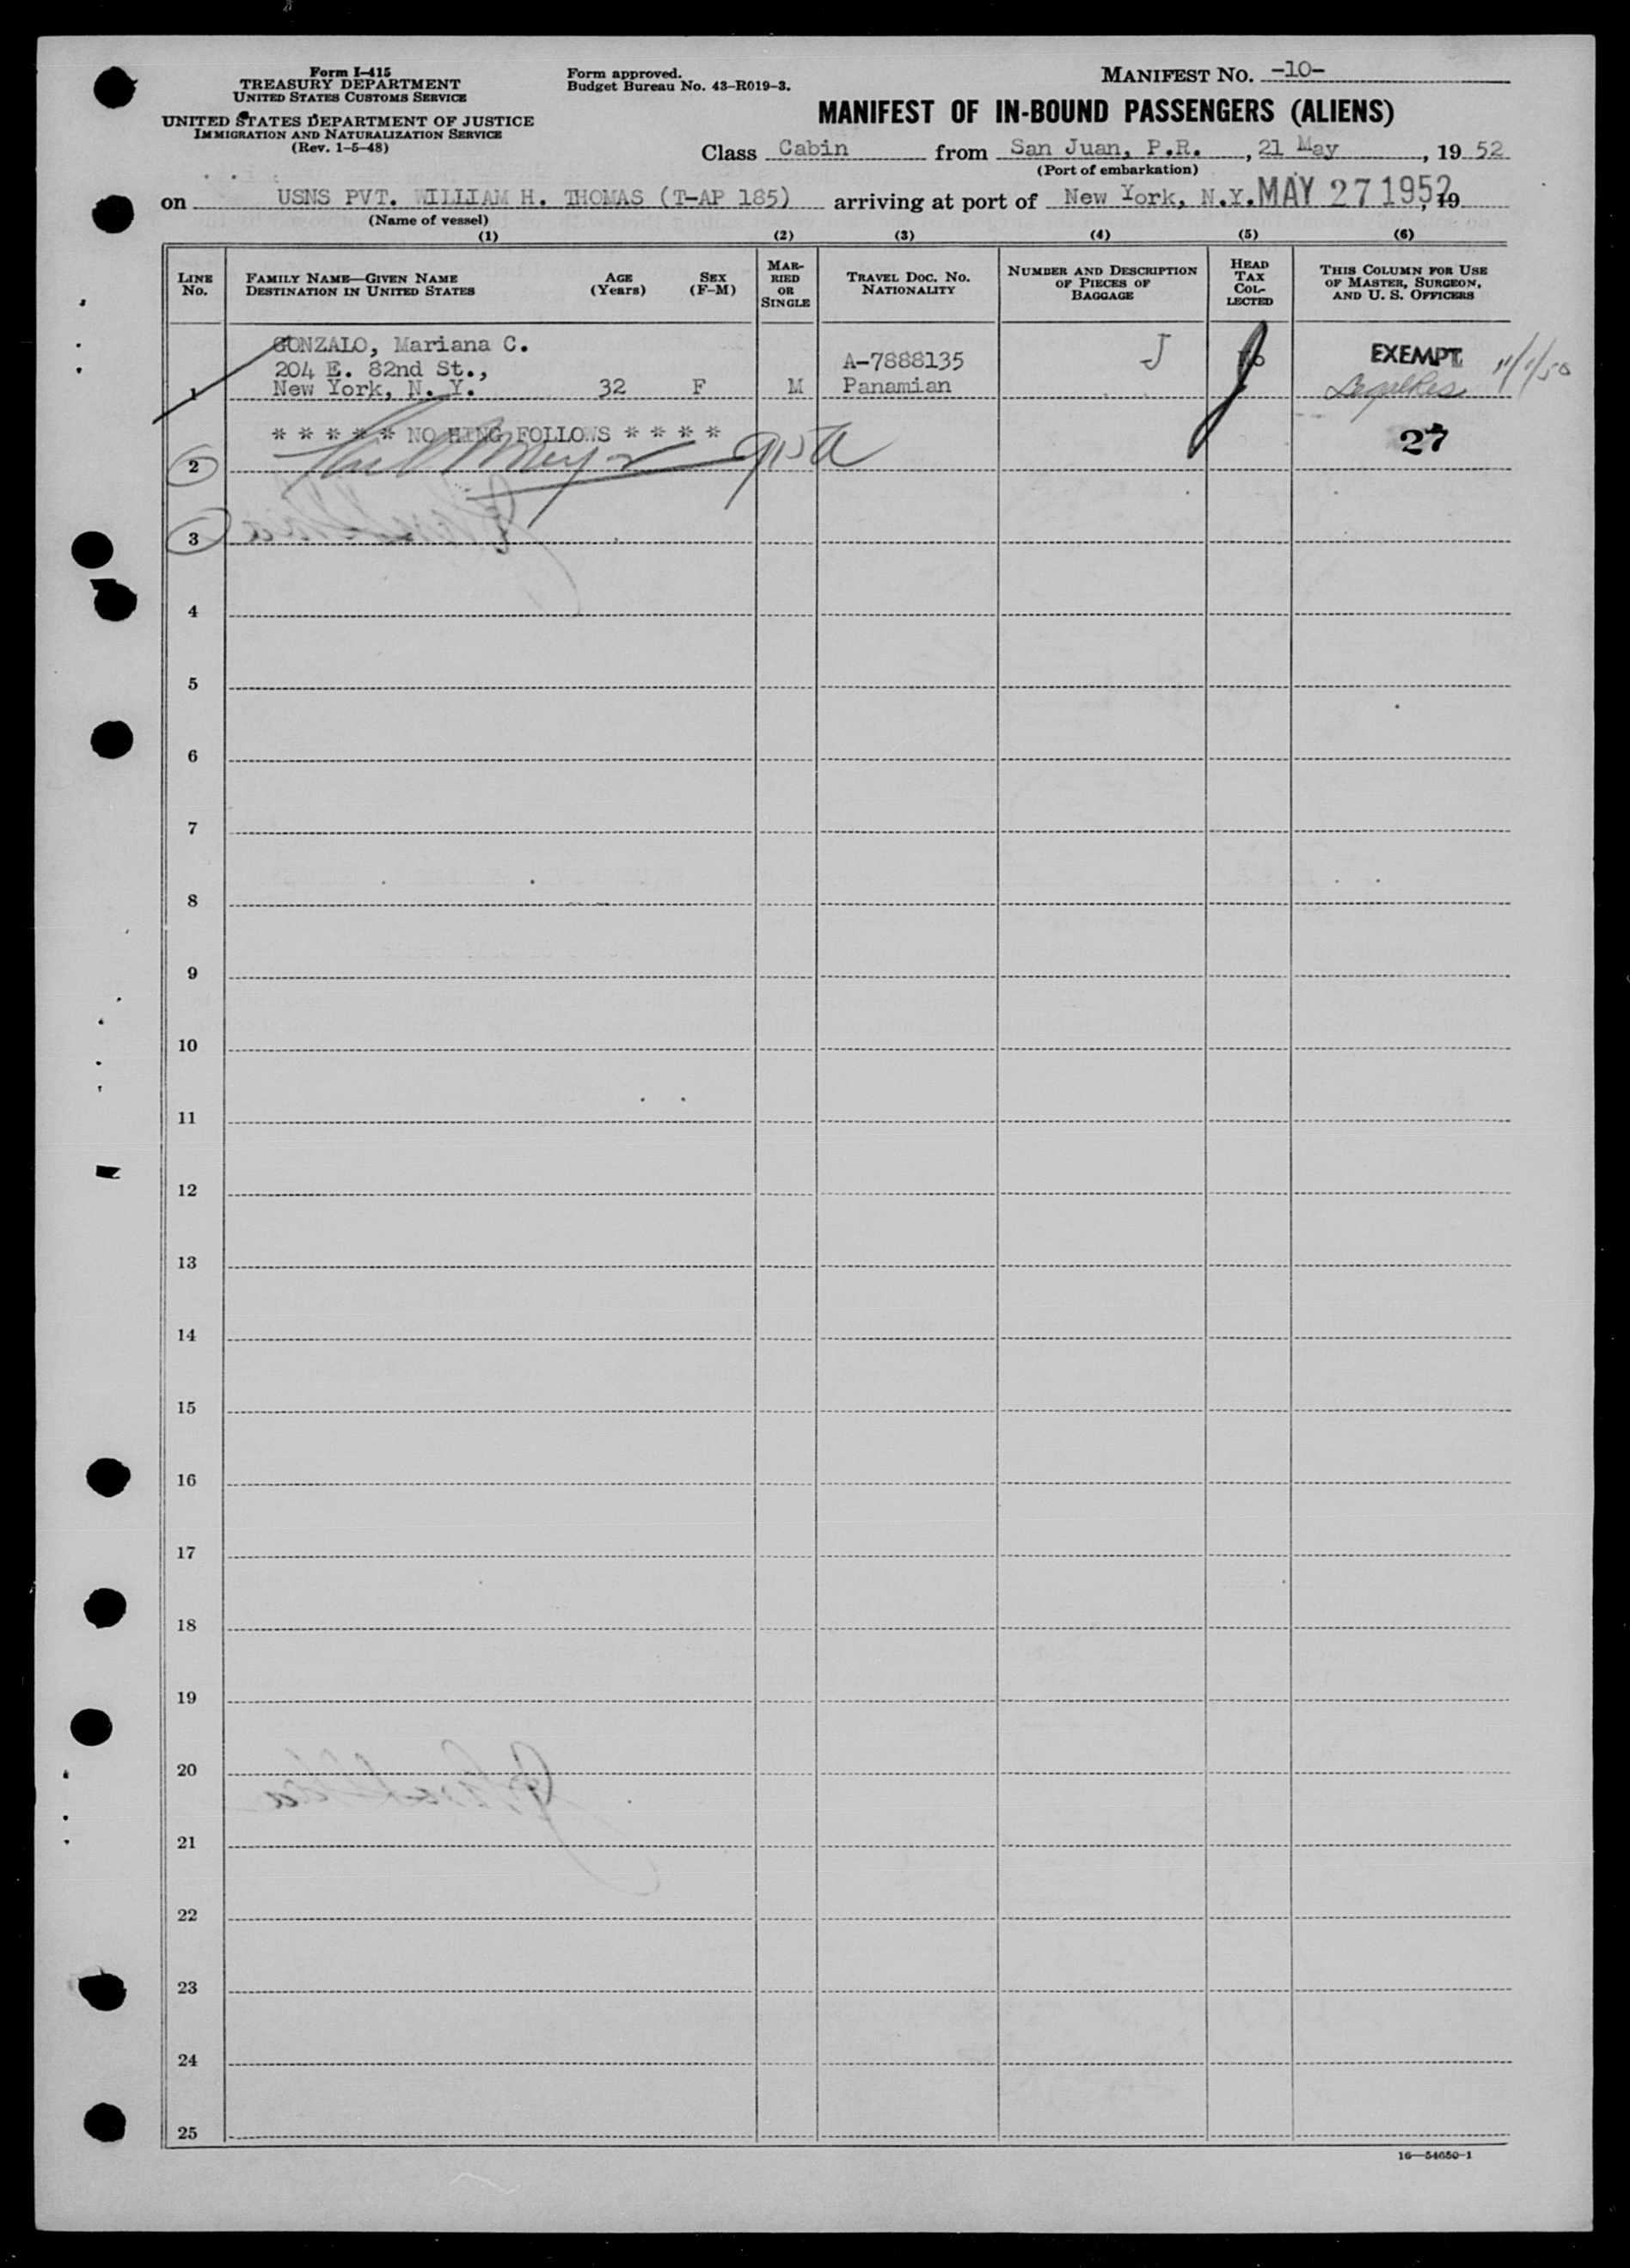 Form I-415
TREASURY DEPARTMENT
UNITED STATES CUSTOMS SERVICE
UNITED STATES DEPARTMENT OF JUSTICE
IMMIGRATION AND NATURALIZATION SERVICE
(Rev. 1-5-48)
Form approved.
Budget Bureau No. 43-R019-3.
MANIFEST NO. -10-
MANIFEST OF IN-BOUND PASSENGERS (ALIENS)
Class Cabin from San Juan, P.R. , 21 May , 19 52
(Port of embarkation)
on USNS PVT. WILLIAM H. THOMAS (T-AP 185) arriving at port of New York, N.Y. MAY 27 1952, 19
(Name of vessel)
(1) (2) (3) (4) (5) (6)
LINE No.
FAMILY NAME—GIVEN NAME
DESTINATION IN UNITED STATES
AGE (Years)
SEX (F-M)
MARRIED OR SINGLE
TRAVEL DOC. NO.
NATIONALITY
NUMBER AND DESCRIPTION OF PIECES OF BAGGAGE
HEAD TAX COLLECTED
THIS COLUMN FOR USE OF MASTER, SURGEON, AND U. S. OFFICERS
GONZALO, Mariana C.
204 E. 82nd St., A-7888135 J EXEMPT
1 New York, N. Y. 32 F M Panamian
* * * * * NOTHING FOLLOWS * * * * 27
2
3
4
5
6
7
8
9
10
11
12
13
14
15
16
17
18
19
20
21
22
23
24
25
16—54650-1